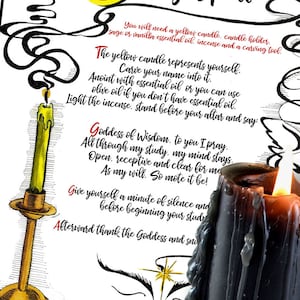 You will need a yellow candle, candle holder,
sage or vanilla essential oil, incense and a carving tool.
The yellow candle represents yourself.
Carve your name into it.
Anoint with essential oil or you can use
olive oil if you don't have essential oil.
Light the incense, stand before your altar and say:
Goddess of Wisdom, to you I pray,
All through my study, my mind stays,
Open, receptive and clear for me
As my will, So mote it be!
Give yourself a minute of silence and
before beginning your study
Afterward thank the Goddess and